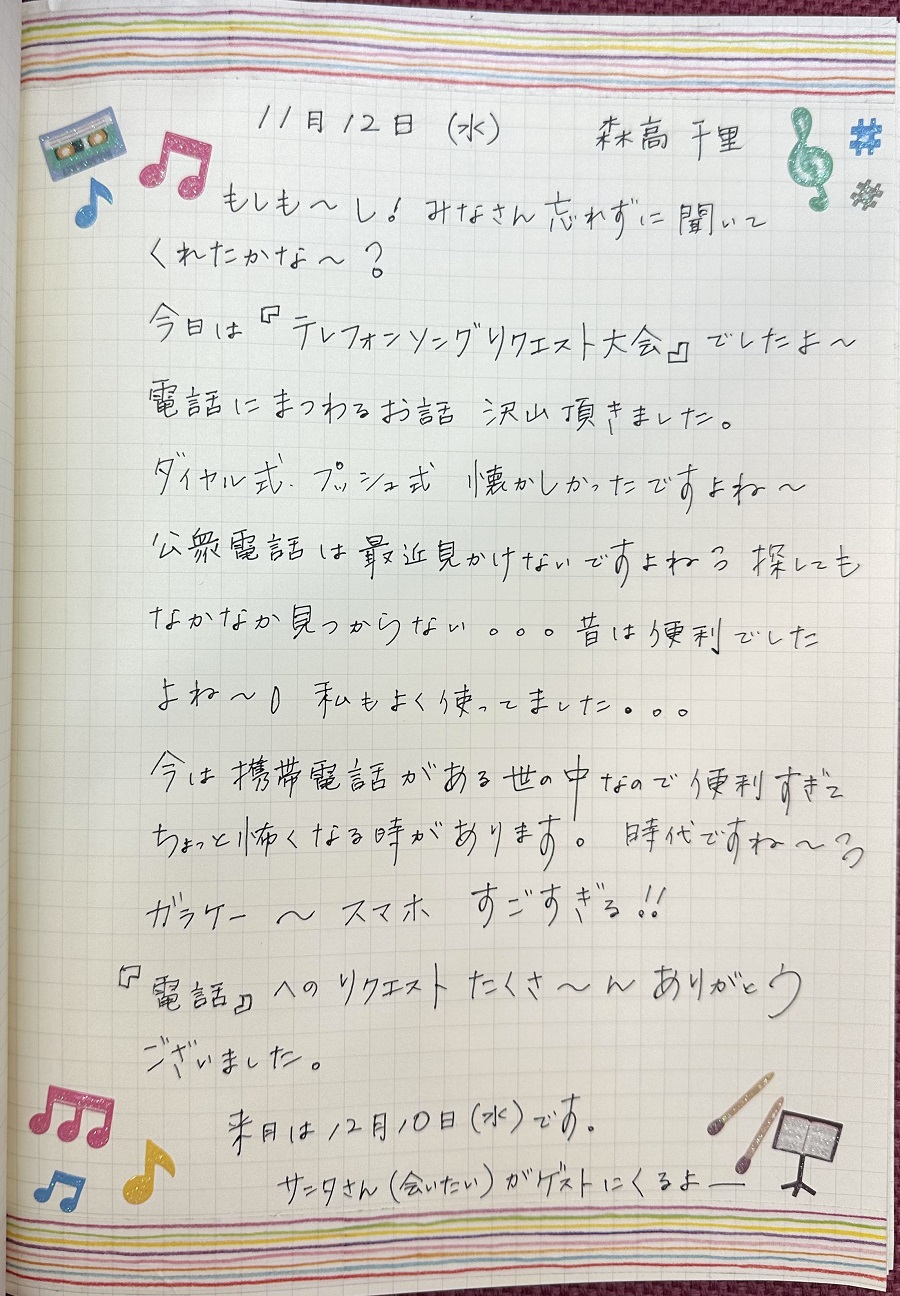 11月12日 (水) 森高 千里
もしも～し! みなさん忘れずに聞いて
くれたかな～?
今日は『テレフォンソングリクエスト大会』でしたよ～
電話にまつわるお話 沢山頂きました。
ダイヤル式. プッシュ式 懐かしかったですよね～
公衆電話は最近見かけないですよねぇ 探しても
なかなか見つからない。。。昔は便利でした
よね～ 私もよく使ってました。。。
今は携帯電話がある世の中なので便利すぎて
ちょっと怖くなる時があります。 時代ですね～
ガラケー ～ スマホ すごすぎる!!
『電話』へのリクエスト たくさ～ん ありがとう
ございました。
来月は12月10日(水)です.
サンタさん(会いたい)がゲストにくるよー